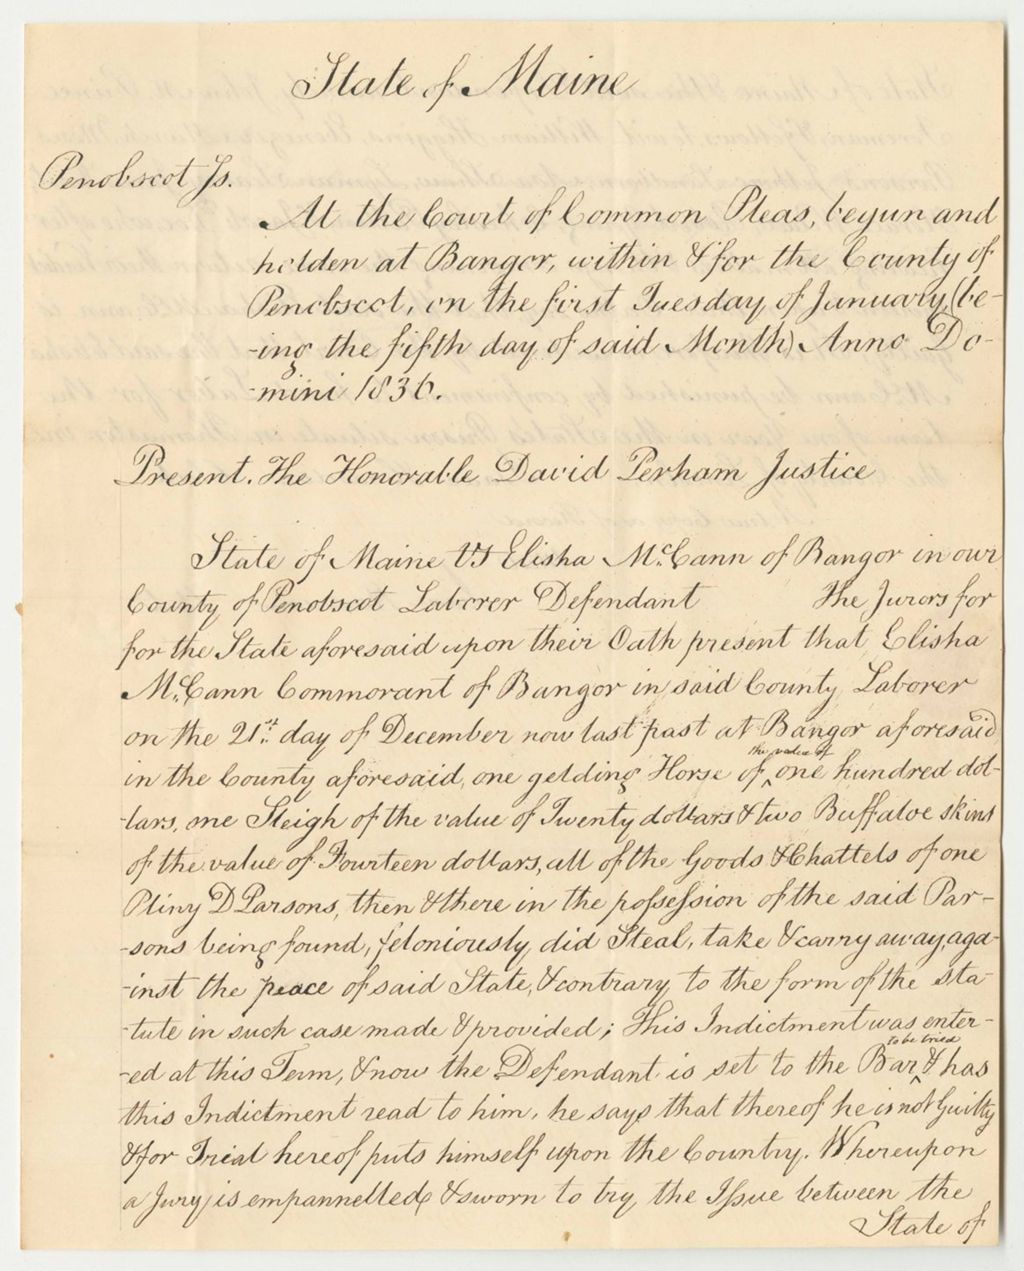 State of Maine
Penobscot Ss.
At the Court of Common Pleas, begun and
holden at Bangor, within & for the County of
Penobscot, on the first Tuesday of January, (be-
-ing the fifth day of said Month) Anno Do-
-mini 1836.
Present. The Honorable David Perham Justice
State of Maine vs Elisha McCann of Bangor in our
County of Penobscot Laborer Defendant The Jurors for
for the State aforesaid upon their Oath present that Elisha
McCann Commorant of Bangor in said County Laborer
on the 21st day of December now last past at Bangor aforesaid
in the County aforesaid, one gelding Horse of ^ the value of one hundred dol-
-lars, one Sleigh of the value of Twenty dollars & two Buffaloe skins
of the value of Fourteen dollars, all of the Goods & Chattels of one
Pliny D Parsons, then & there in the possession of the said Par-
-sons being found, feloniously did Steal, take & carry away, aga-
-inst the peace of said State, & contrary to the form of the sta-
-tute in such case made & provided; This Indictment was enter-
-ed at this Term, & now the Defendant is set to the Bar ^ to be tried & has
this Indictment read to him, he says that thereof he is not Guilty
& for Trial hereof puts himself upon the Country. Whereupon
a Jury is empannelled & sworn to try the Issue between the
State of